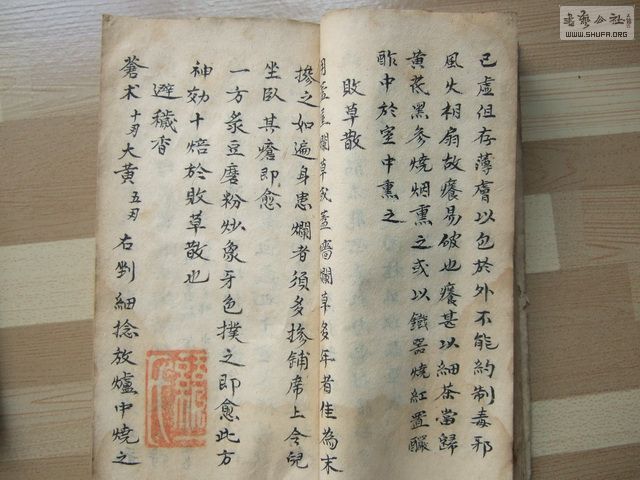 已虛但存薄膚以包於外不能約制毒邪
風火相扇故癢易破也癢甚以細茶當歸
黃茋黑參燒烟熏之或以鐵器燒紅置釅
酢中於室中熏之
敗草散
用盖屋爛草或蓋墻爛草多年者佳為末
摻之如遍身患爛者須多摻鋪席上令兒
坐臥其瘡即愈
一方菉豆磨粉炒象牙色撲之即愈此方
神効十倍於敗草散也
避穢香
蒼朮十刃大黃五刃右剉細捻放爐中燒之
書藝公社
WWW.SHUFA.ORG